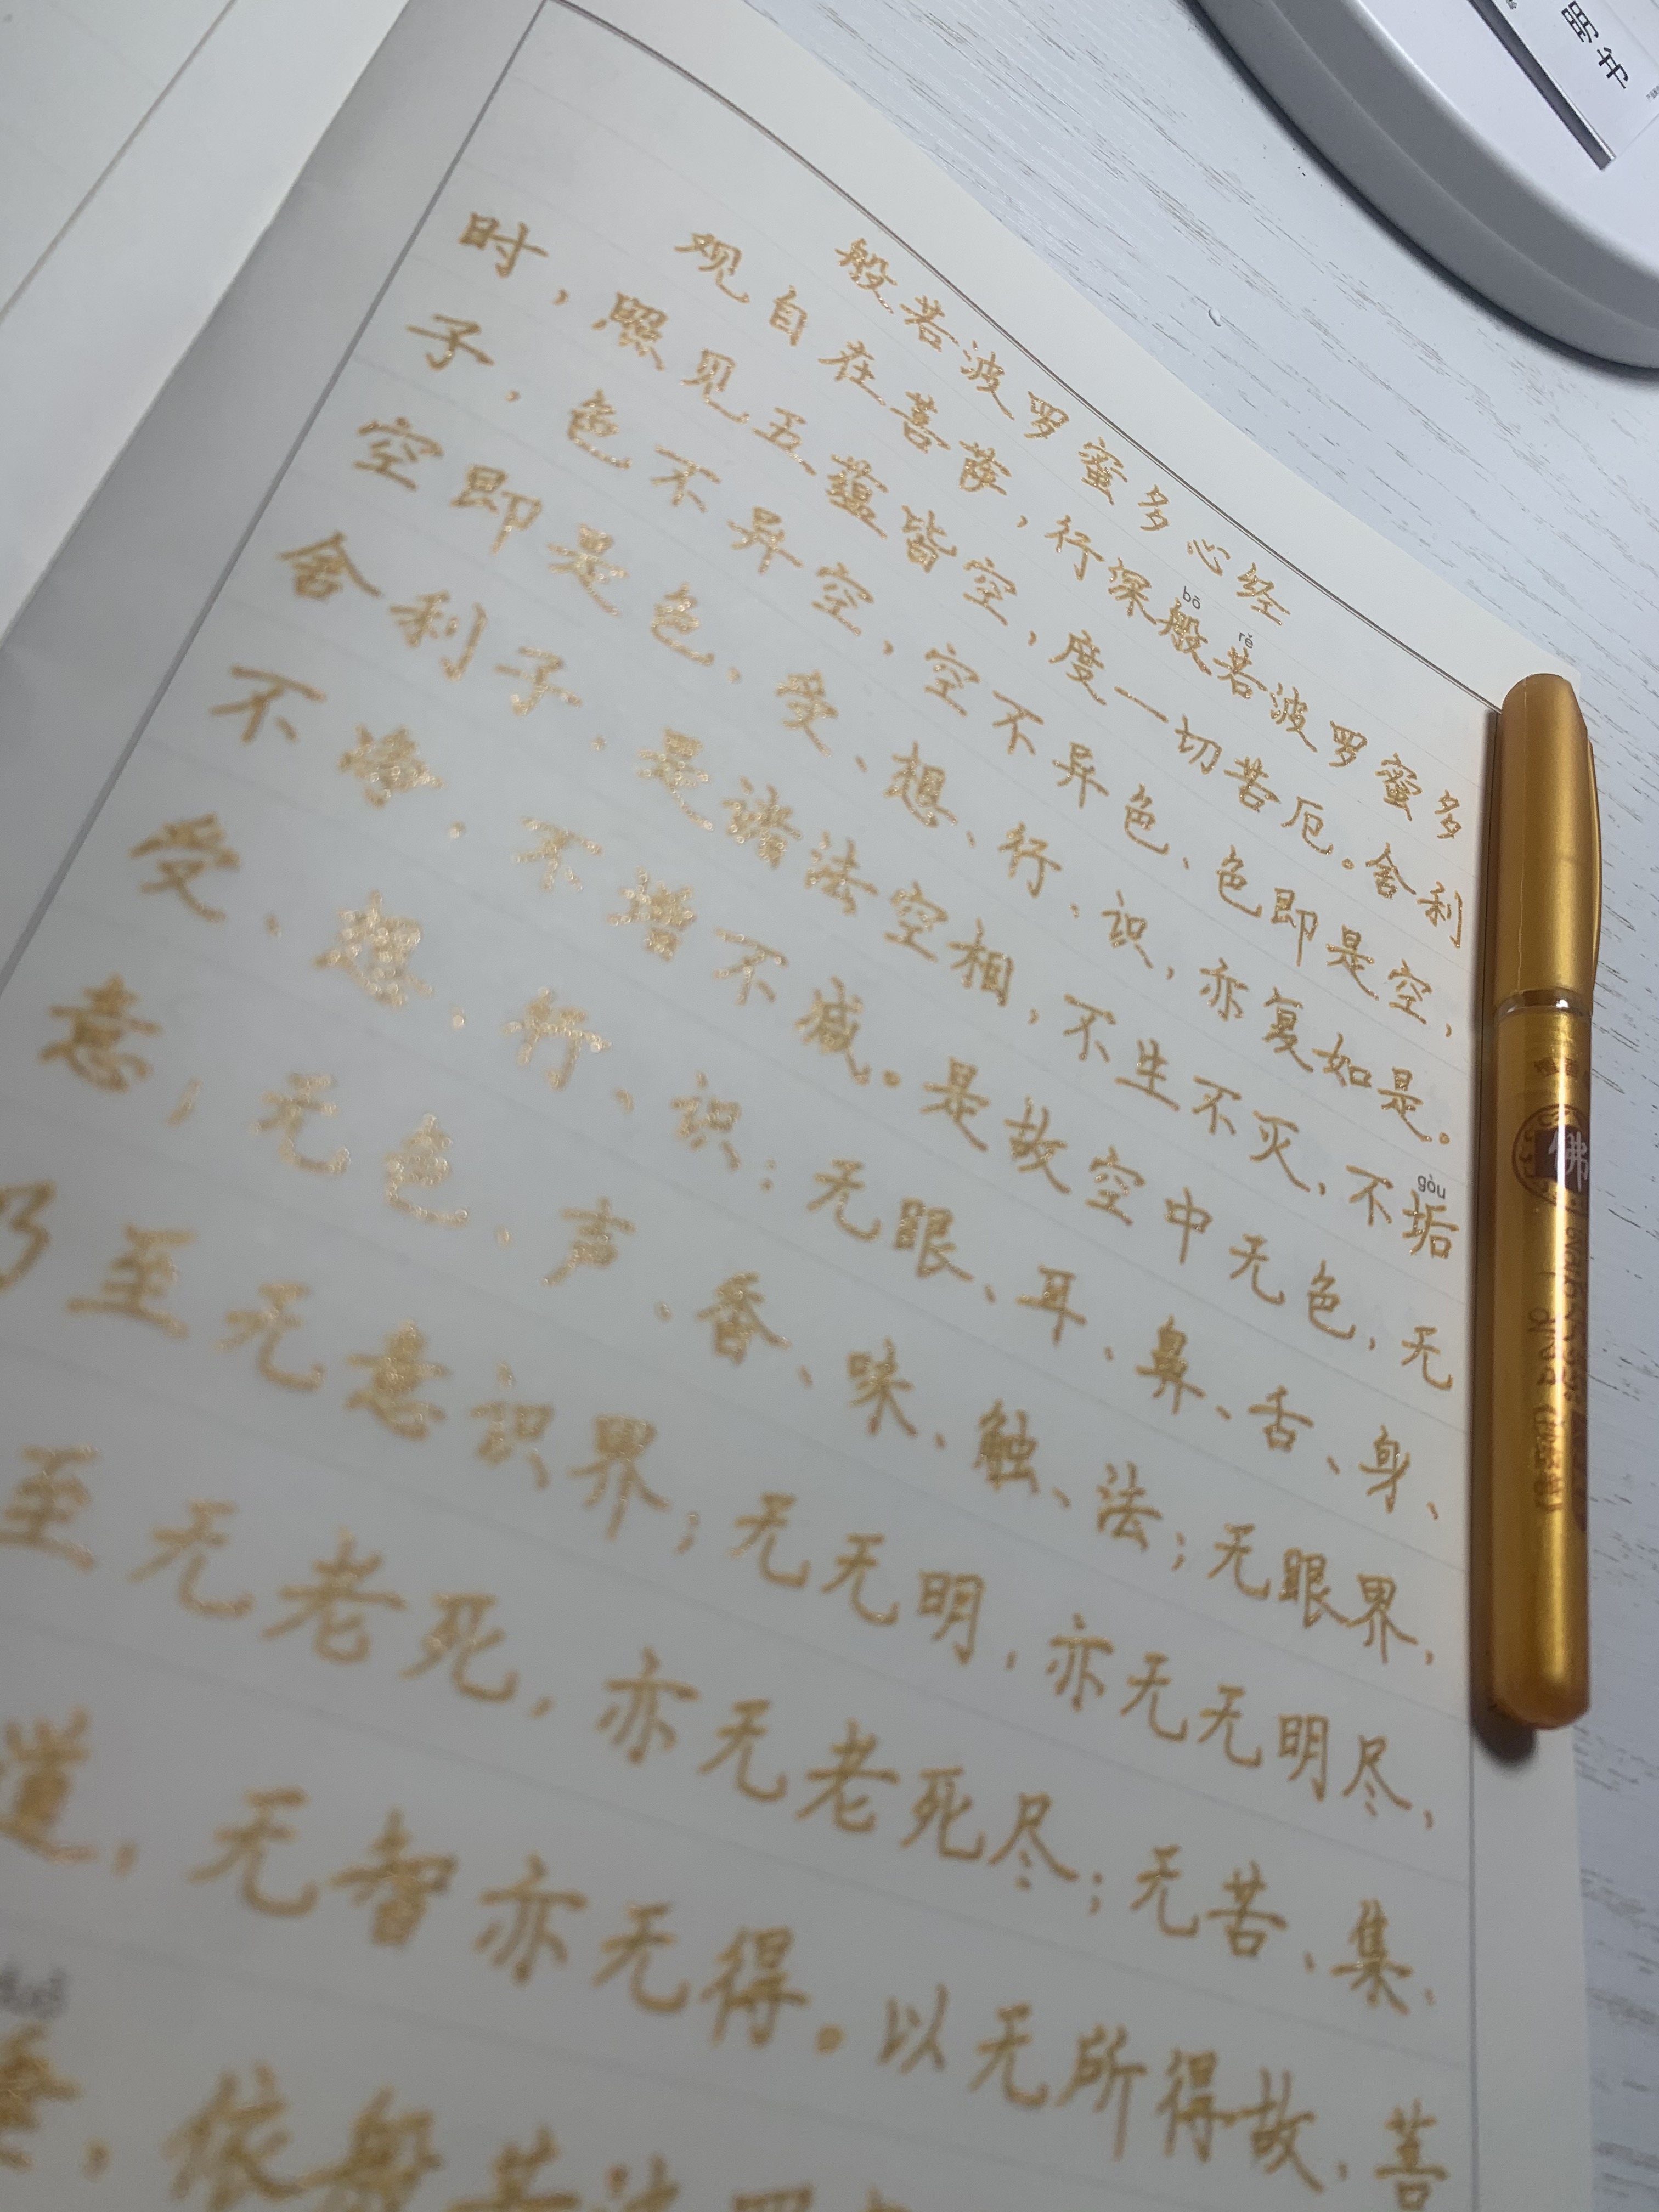 般若波罗蜜多心经
观自在菩萨，行深般若波罗蜜多
bō rě
时，照见五蕴皆空，度一切苦厄。舍利
子，色不异空，空不异色、色即是空，
空即是色、受、想、行、识，亦复如是。
舍利子、是诸法空相，不生不灭，不垢
gòu
不净，不增不减。是故空中无色，无
受、想、行、识；无眼、耳、鼻、舌、身、
意；无色、声、香、味、触、法；无眼界，
乃至无意识界；无无明，亦无无明尽，
至无老死，亦无老死尽；无苦、集、
道，无智亦无得。以无所得故，菩
，依般若波罗
佛